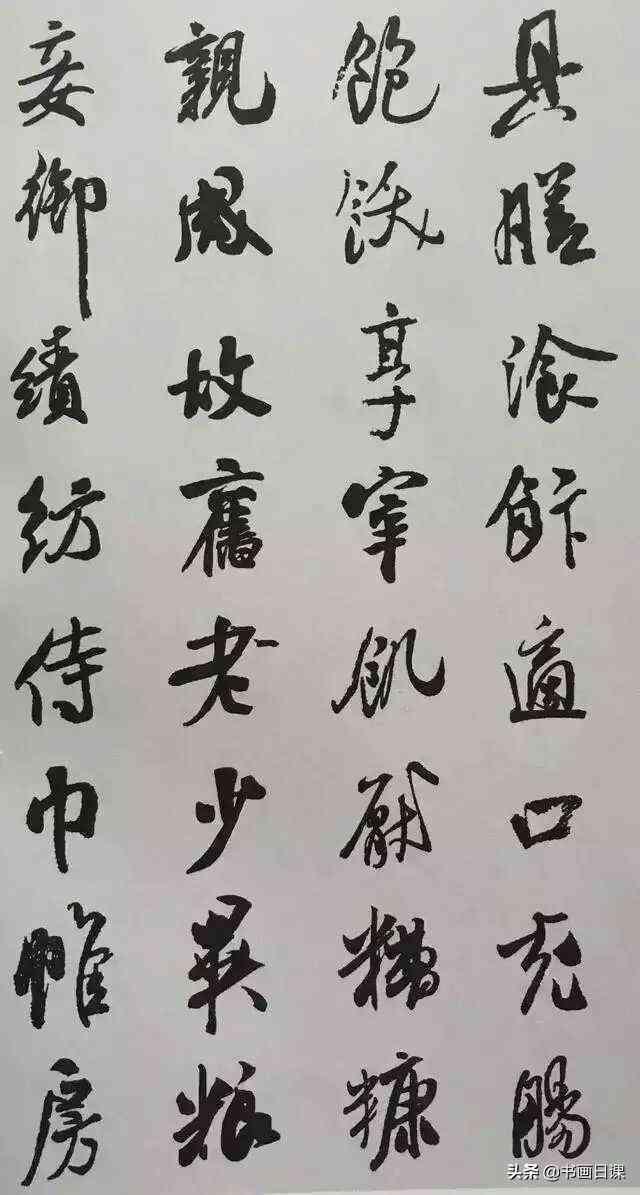 具膳湌飰適口充腸
飽飫享宰飢厭糟糠
親戚故舊老少異粮
妾御績紡侍巾帷房
头条@书画日课